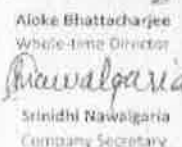 Aloke Bhattacharjee
Whole-time Director
Nawalgaria
Srinidhi Nawalgaria
Company Secretary